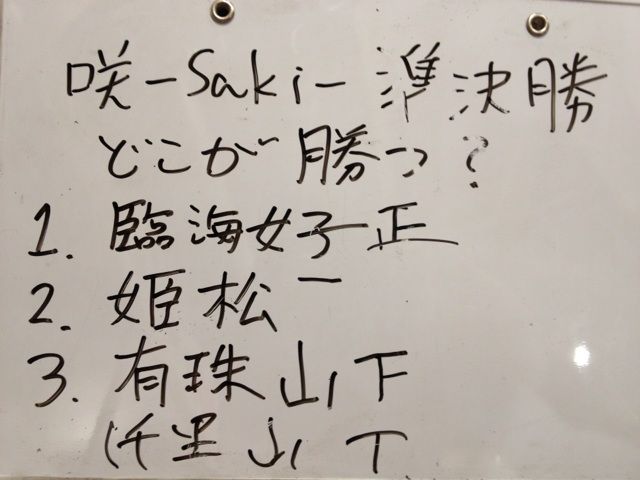 咲-Saki- 準決勝
どこが勝つ?
1. 臨海女子 正
2. 姫松 一
3. 有珠山 下
(千里山 T